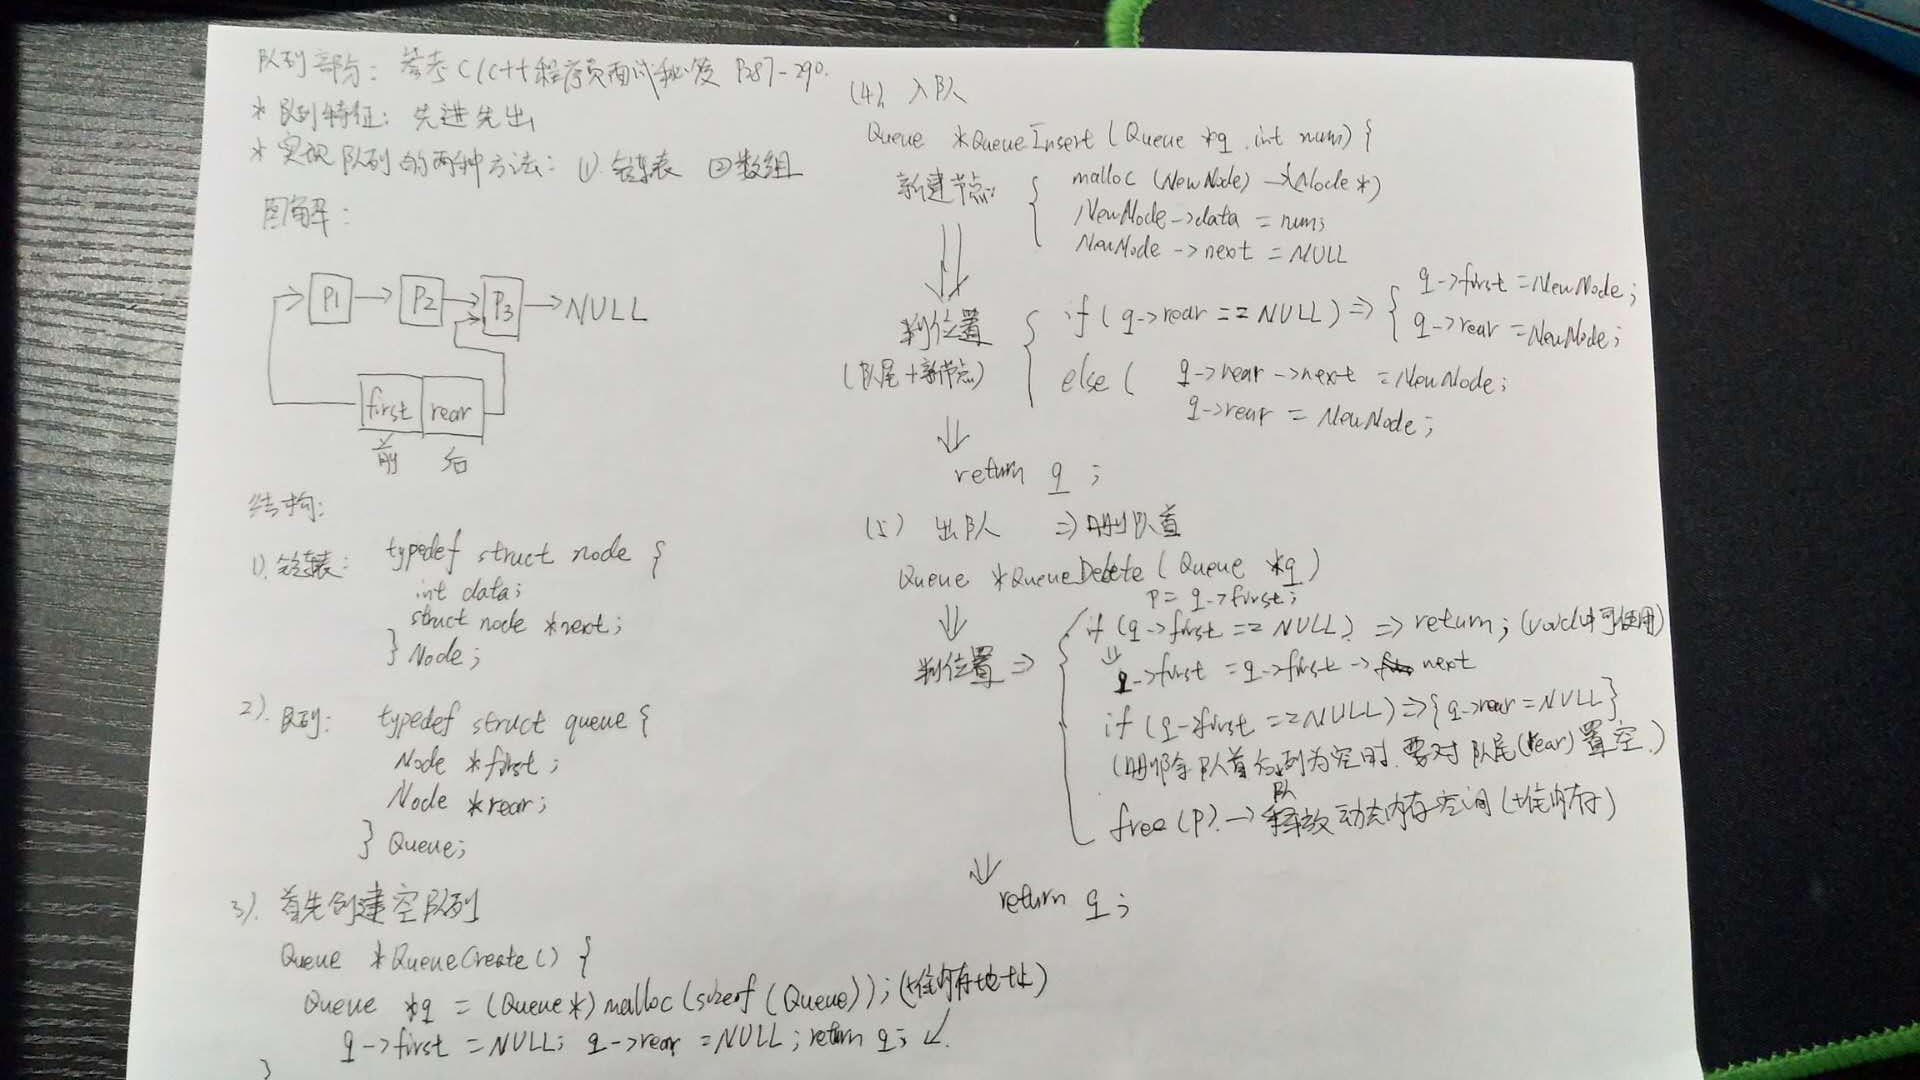 队列部分: 参考 C/C++程序员面试秘笈 P287-290.
* 队列特征: 先进先出
* 实现队列的两种方法: ①.链表 ②数组
图解:
P1 → P2 → P3 → NULL
first rear
前 后
结构:
1).链表: typedef struct node {
int data;
struct node *next;
} Node;
2).队列: typedef struct queue {
Node *first;
Node *rear;
} Queue;
3). 首先创建空队列
Queue *QueueCreate() {
Queue *q = (Queue*) malloc (sizeof (Queue)); (堆内存地址)
q->first = NULL; q->rear = NULL; return q; ↙.
}
(4). 入队
Queue *QueueInsert (Queue *q, int num) {
新建节点: { malloc (NewNode) → (Node *)
NewNode->data = num;
NewNode->next = NULL
判位置 { if ( q->rear == NULL ) => { q->first = NewNode;
q->rear = NewNode;
(队尾+新节点) else ( q->rear->next = NewNode;
q->rear = NewNode;
return q ;
(5) 出队 => 删队首
Queue *QueueDelete ( Queue *q )
P = q->first;
if (q->first == NULL) => return; (void中可使用)
判位置 => { q->first = q->first-> next
if (q->first == NULL) => { q->rear = NULL }
(删除队首后队列为空时, 要对队尾(rear)置空.)
free (P). → 释放动态内存空间 (堆内存)
return q ;